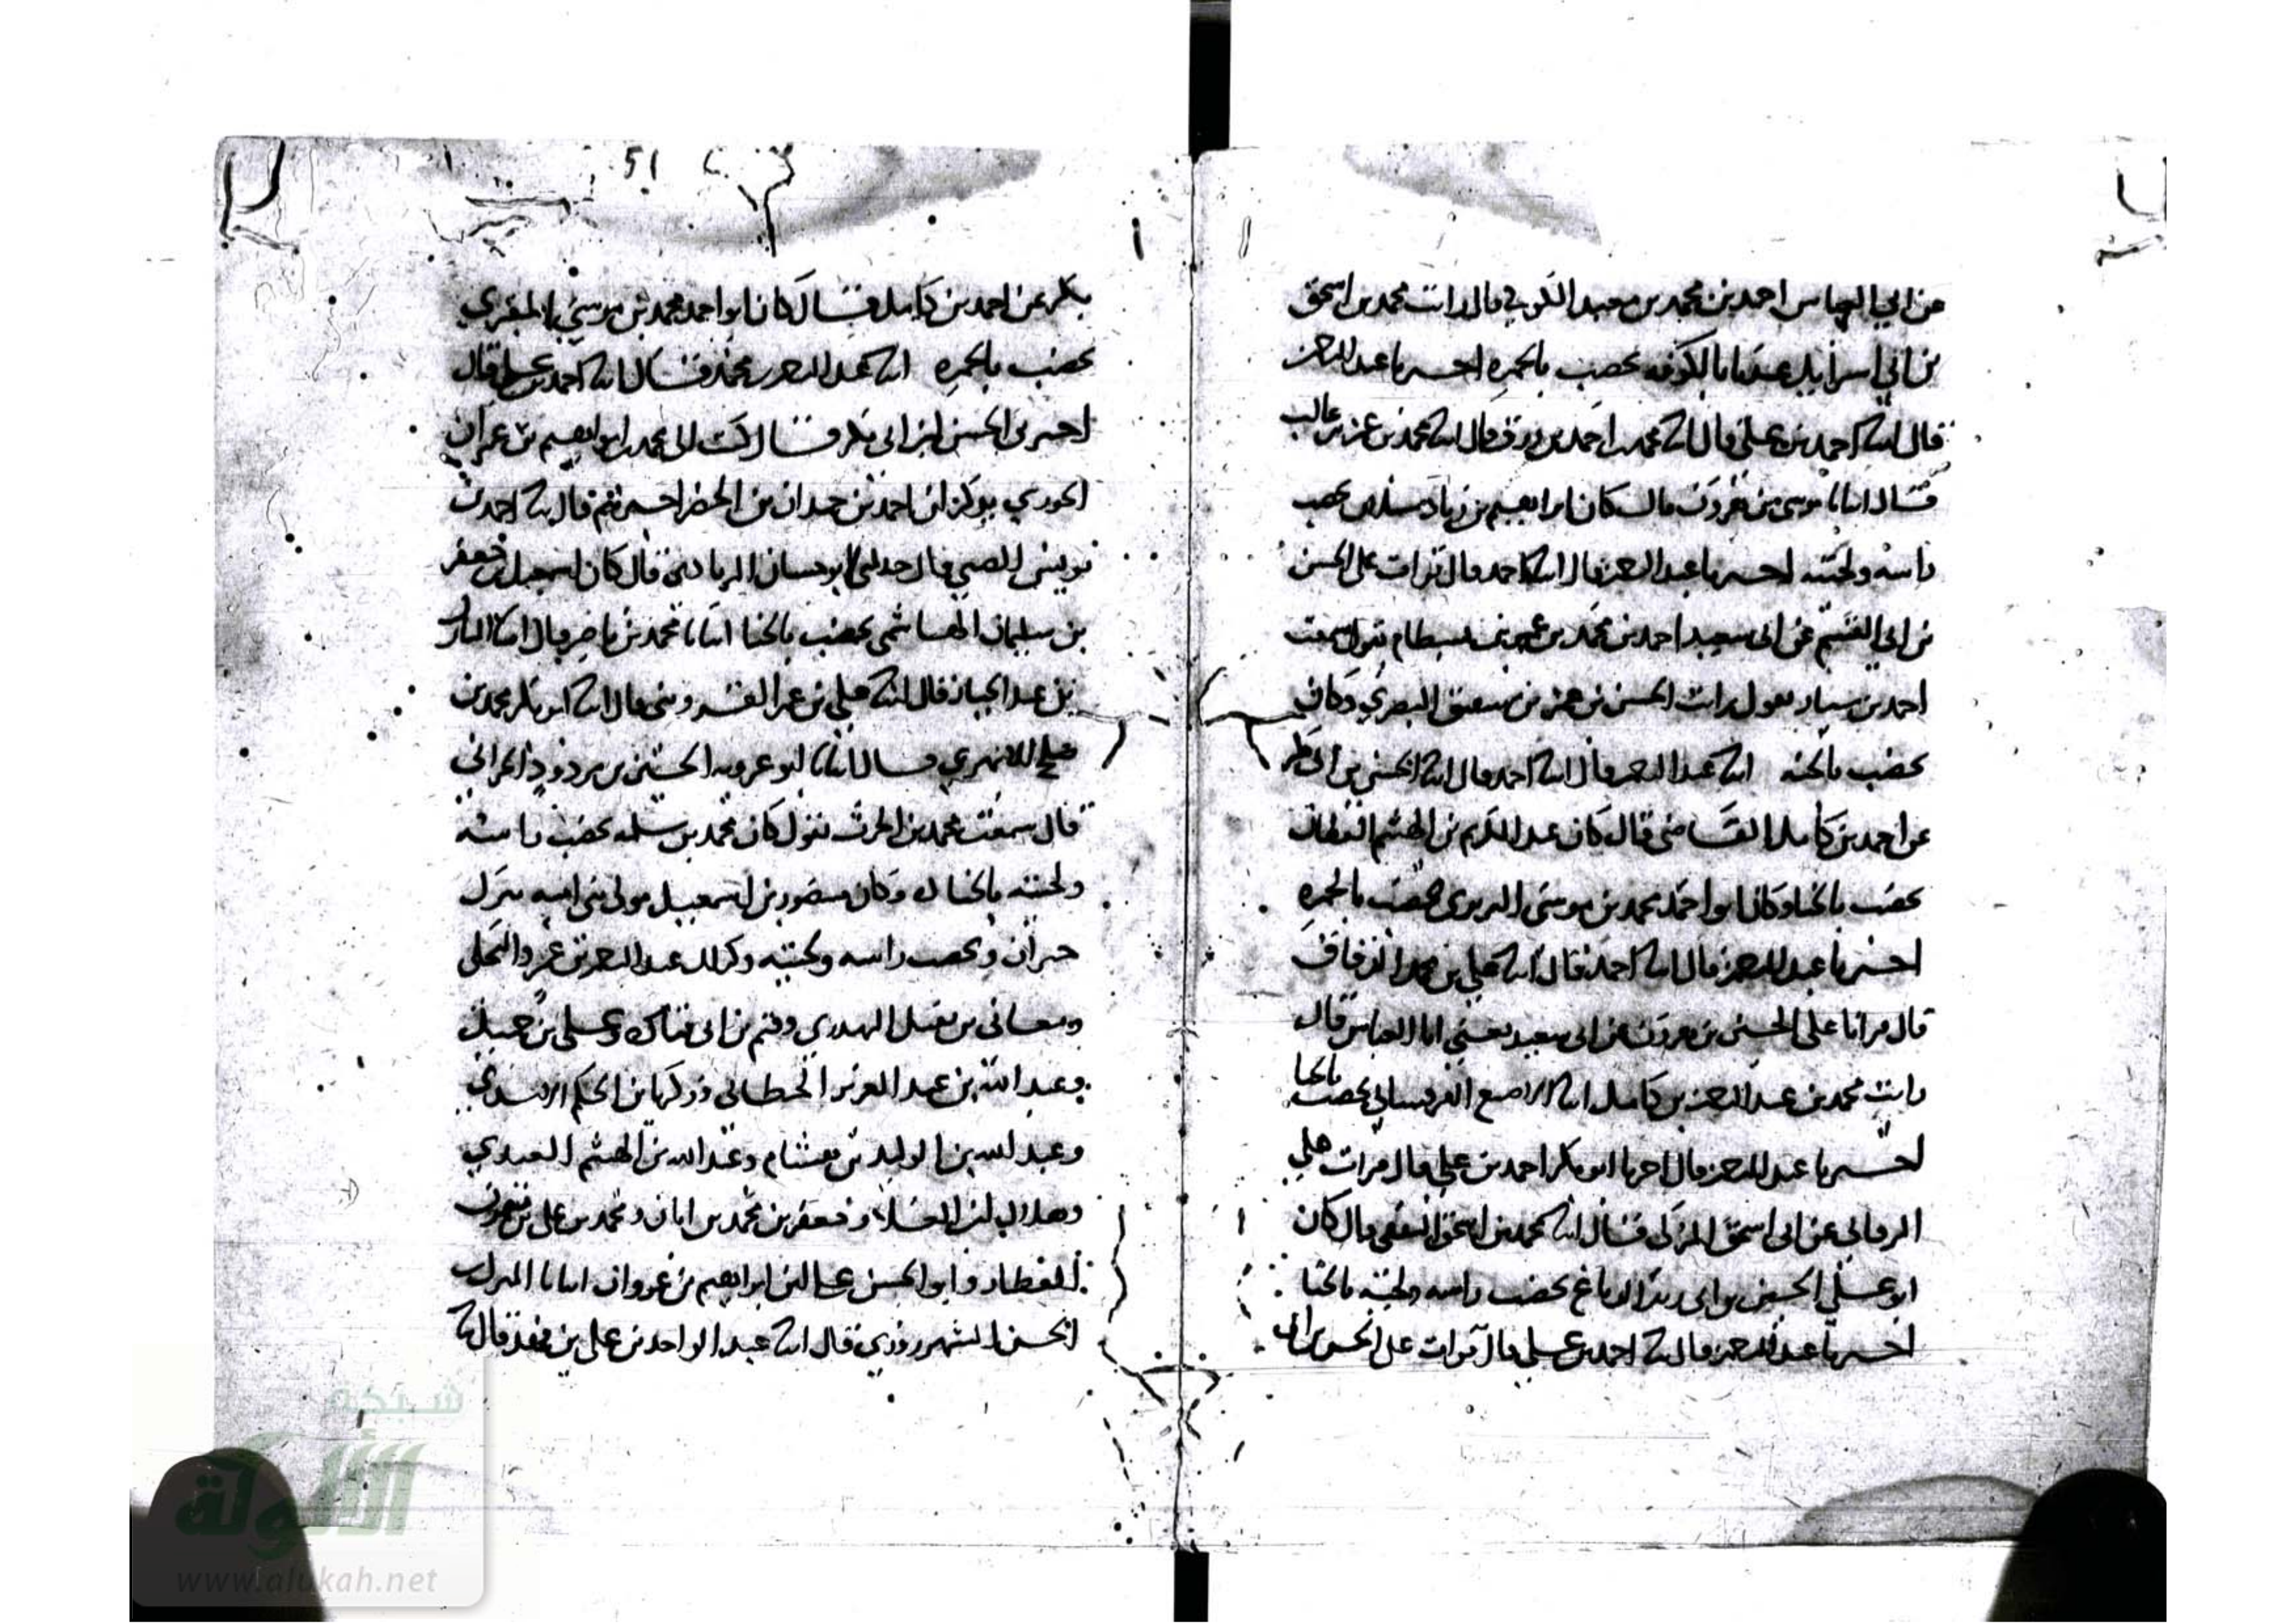 عن ابي العباس احمد بن محمد بن سعيد الكوفي قال رات محمد بن اسحق
بن ابي اسرايل عندنا بالكوفه يخضب بالحمره اخبرنا عبد العزيز
قال انا احمد بن علي قال انا محمد بن احمد بن رزق قال انا محمد بن عمر بن غالب
قال انبانا موسى بن هرون قال كان ابراهيم بن زياد سبلان يخضب
راسه ولحيته اخبرنا عبد العزيز قال انا احمد قال قرات على الحسن
بن ابي القسم عن ابي سعيد احمد بن محمد بن عمر بن بسطام يقول سمعت
احمد بن سيار يقول رات الحسن بن عمر بن شقيق البصري وكان
يخضب بالحنه انا عبد العزيز قال انا احمد قال انا الحسن بن ابي بكر
عن احمد بن كامل القاضي قال كان عبد الكريم بن الهيثم القطان
يخضب بالحنا وكان ابو احمد محمد بن موسى البربري يخضب بالحمره
اخبرنا عبد العزيز قال انا احمد قال انا علي بن محمد الدقاق
قال قرانا على الحسين بن هرون عن ابي سعيد يعني ابا العباس قال
رات محمد بن عبد العزيز بن كامل ابا الاصبع القرقساني يخضب بالحنا
اخبرنا عبد العزيز قال اخبرنا ابو بكر احمد بن علي قال قرات على
البرقاني عن ابي اسحق المزكي قال انا محمد بن اسحق الثقفي قال كان
ابو علي الحسين بن ابي زيد الدباغ يخضب راسه ولحيته بالحنا
اخبرنا عبد العزيز قال انا احمد بن علي قال قرات على الحسن بن ابي
51
بكر عن احمد بن كامل قال كان ابو احمد محمد بن موسى
يخضب بالحمره انا عبد العزيز بن محمد قال انا احمد بن علي قال
اخبرني الحسن بن ابي بكر قال كتب الي محمد بن ابراهيم بن عمران
الجوري يذكر ان احمد بن حمدان بن الخضر اخبرهم قال انا احمد بن
يونس الضبي قال حدثني ابو حسان الزيادي قال كان اسمعيل بن جعفر
بن سليمان الهاشمي يخضب بالحنا انبانا محمد بن ناصر قال انا المبارك
بن عبد الجبار قال انا علي بن عمر القزويني قال انا ابو بكر محمد بن
علي قال انبانا ابو عروبه الحسين بن مودود الحراني
قال سمعت محمد بن الحرث يقول كان محمد بن سلمه يخضب راسه
ولحيته بالحنا وكان منصور بن اسمعيل مولى بني اميه نزل
حران ويخضب راسه ولحيته وكذلك عبد العزيز بن عمرو
ومعافى بن وقثم بن ابي قتاده وعلي بن جميل
وعبد الله بن عبد العزيز الخطابي وزكريا بن الحكم الاسدي
وعبد الله بن الوليد بن هشام وعبد الله بن الهيثم العبدي
وهلال بن العلاء وجعفر بن محمد بن ابان ومحمد بن علي بن ميمون
العطار وابو الحسن علي بن ابراهيم بن عزوان انبانا المبارك
بن الحسن الشهرزوري قال انا عبد الواحد بن علي بن فهد قال انا